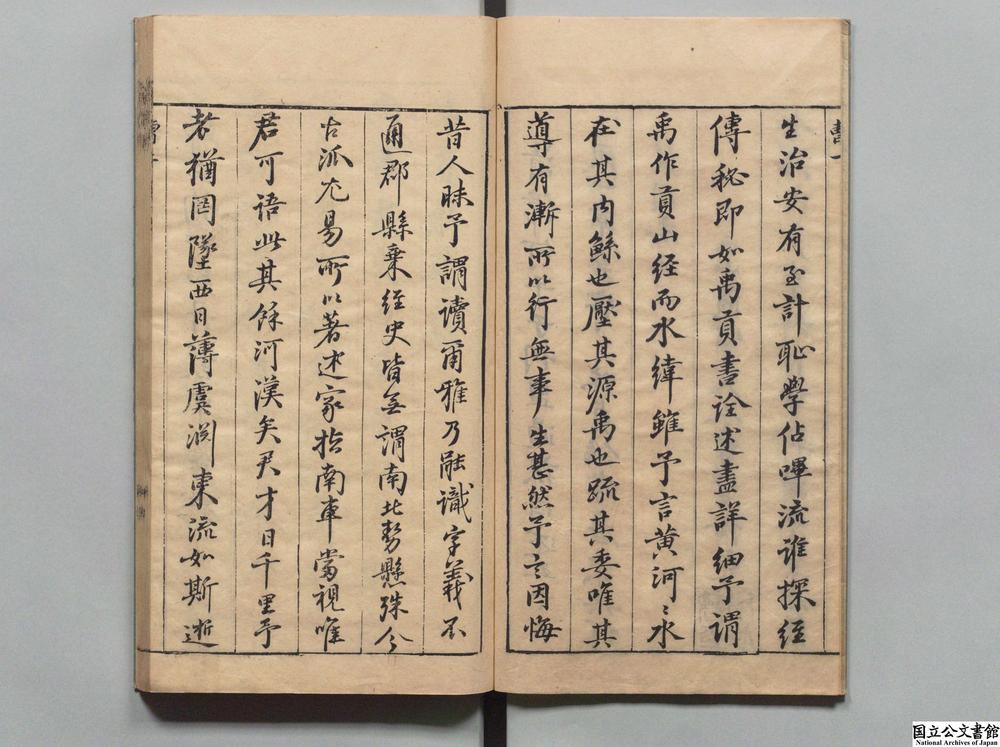 生治安有至計恥學佔嗶流誰探經
傳秘即如禹貢書詮述盡詳細予謂
禹作貢山经而水緯雖予言黄河〻水
在其内鲧也壓其源禹也疏其委唯其
導有漸所以行無事生甚然予言因悔
昔人昧予謂讀爾雅乃能識字義不
通郡縣乗經史皆無謂南北勢懸殊今
古派尤易所以著述家指南車當視唯
君可语此其餘河漢矣君才日千里予
老猶罔墜西日薄虞淵東流如斯逝
国立公文書館
National Archives of Japan